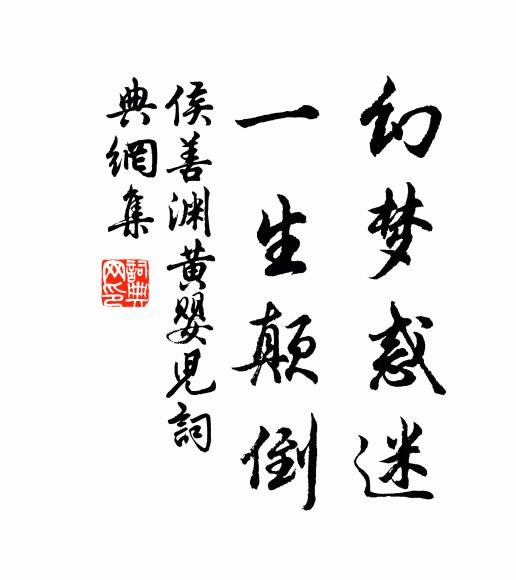 幻梦惑迷
一生颠倒
侯善渊黄婴儿詞
典網集
詞典
网印